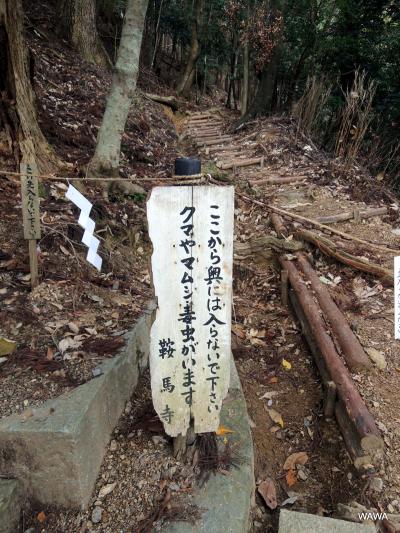 ここから奥には入らないで下さい
クマやマムシ毒虫がいます
鞍馬寺
WAWA